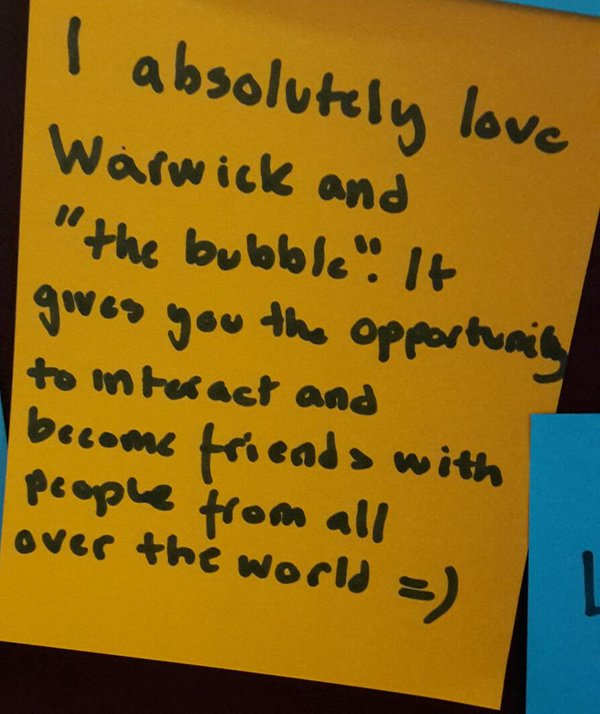 I absolutely love
Warwick and
"the bubble". It
gives you the opportunity
to interact and
become friends with
people from all
over the world =)
L